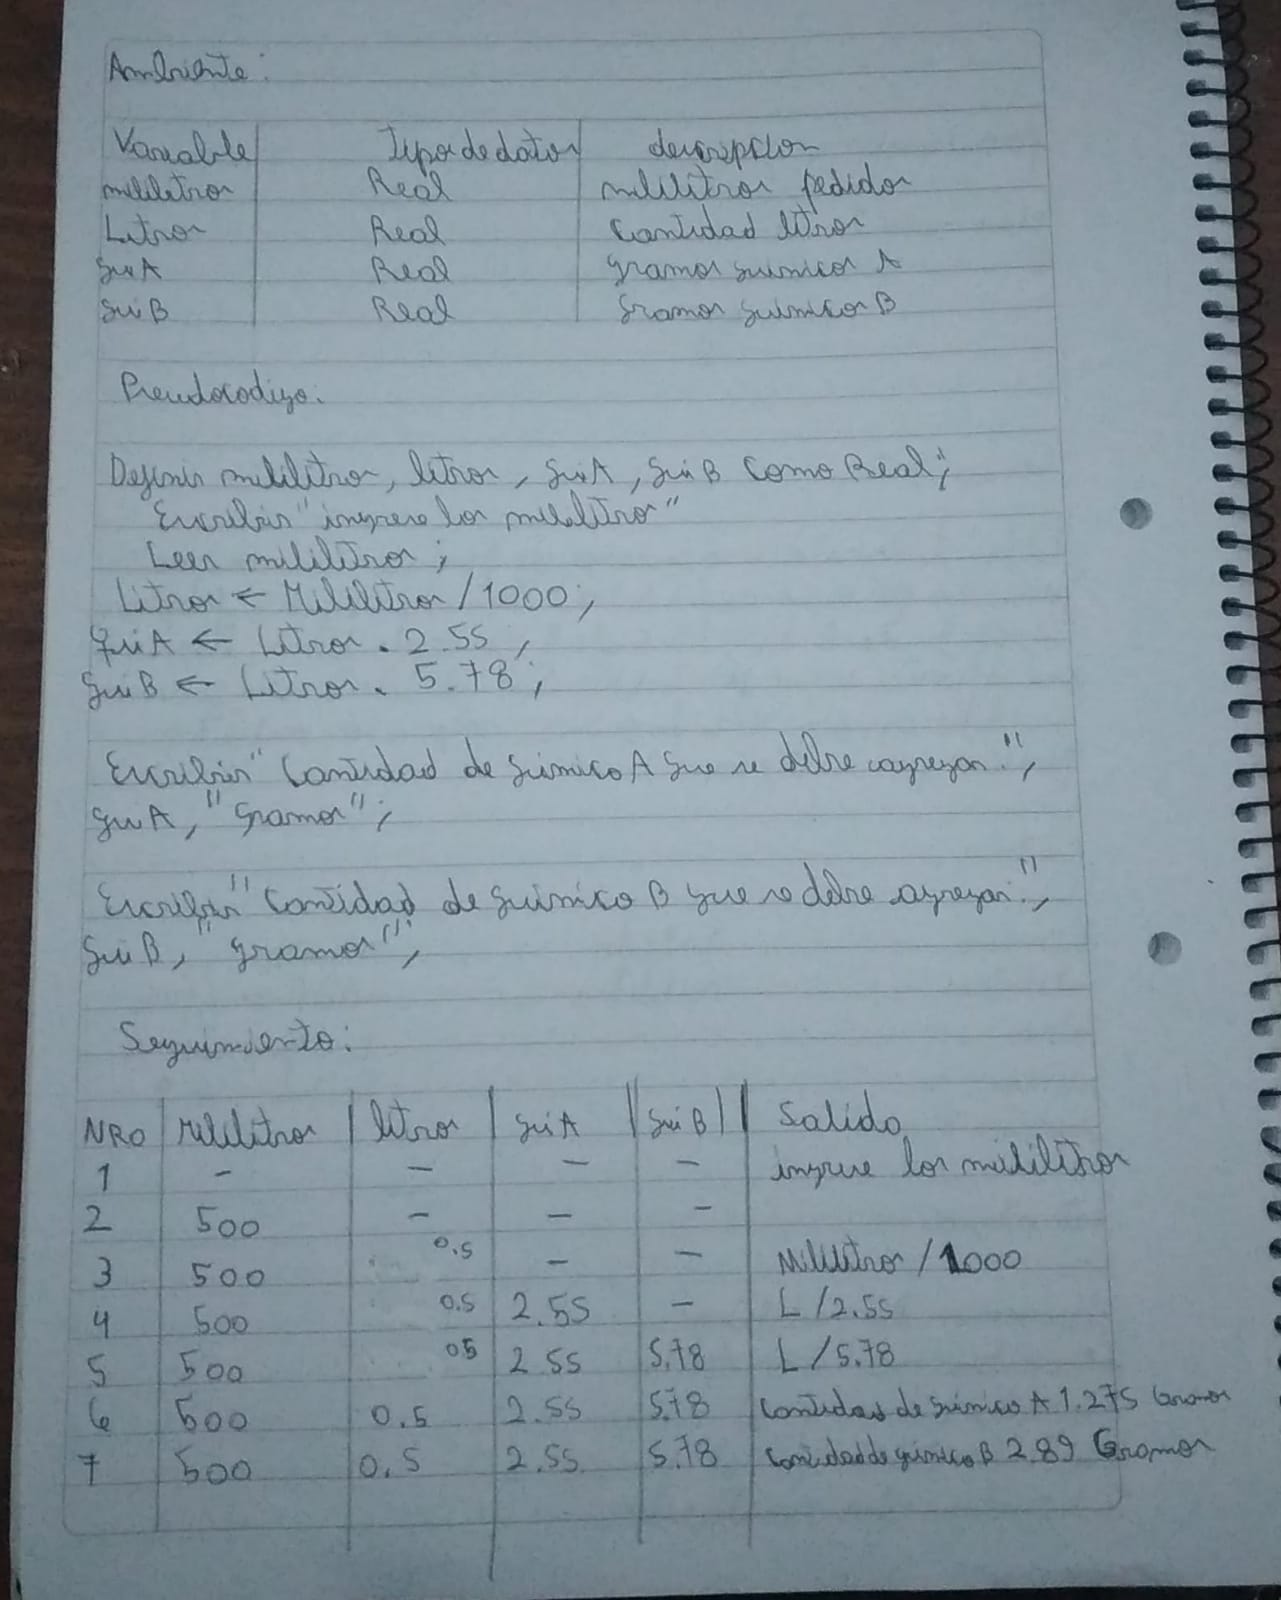 Ambiente:
Variable Tipo de datos descripcion
mililitros Real mililitros pedidos
Litros Real Cantidad litros
quiA Real gramos quimicos A
quiB Real gramos quimicos B
Pseudocodigo:
Definir mililitros, litros, quiA, quiB Como Real;
Escribir "ingrese los mililitros"
Leer mililitros;
Litros ← Mililitros / 1000;
quiA ← Litros . 2.55;
quiB ← Litros . 5.78;
Escribir "Cantidad de quimico A que se debe agregar:",
quiA, "Gramos";
Escribir "Cantidad de quimico B que se debe agregar:",
quiB, "gramos";
Seguimiento:
NRO Mililitros litros quiA quiB Salida
1 - - - - ingrese los mililitros
2 500 - - -
3 500 0.5 - - Mililitros / 1000
4 500 0.5 2.55 - L / 2.55
5 500 05 2.55 5.78 L / 5.78
6 500 0.5 2.55 5.78 Cantidad de quimico A 1.275 Gramos
7 500 0.5 2.55 5.78 Cantidad de quimico B 2.89 Gramos